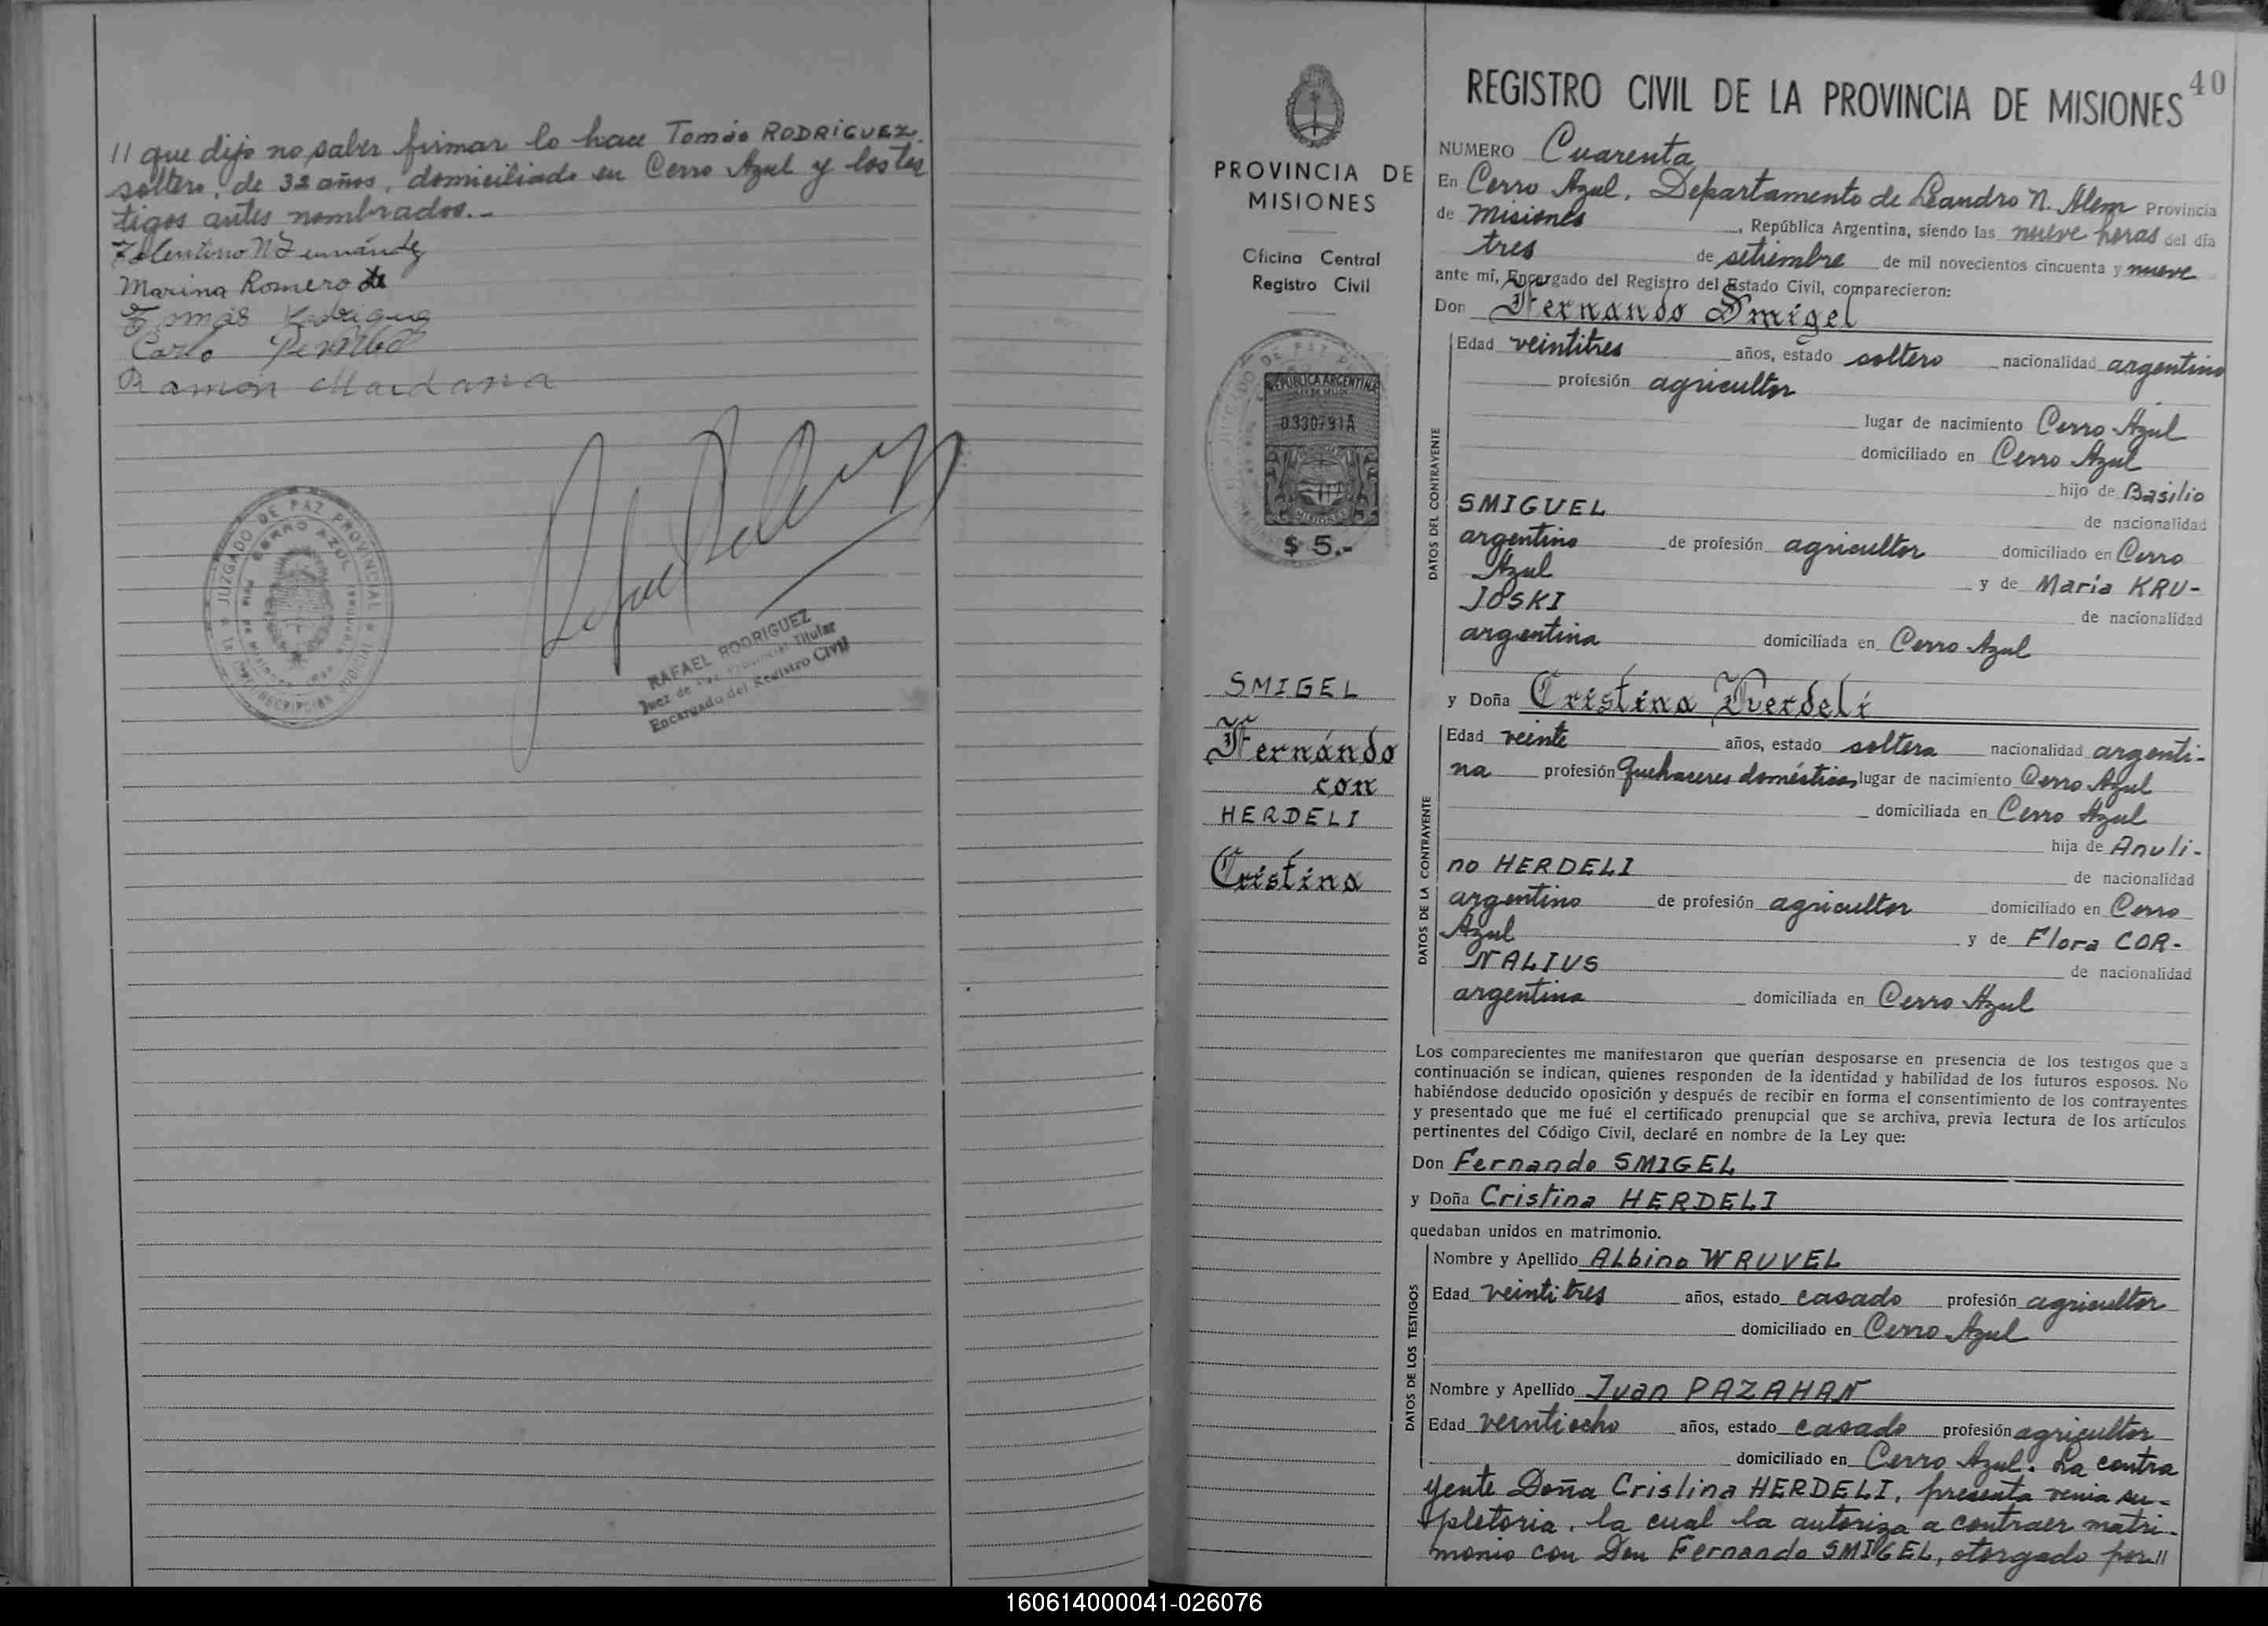 // que dijo no saber firmar lo hace Tomás RODRIGUEZ.
soltero, de 32 años, domiciliado en Cerro Azul y los tes
tigos antes nombrados.-
Marina Romero de
Tomás Rodrigue
Carlo
Ramón Maidana
JUZGADO DE PAZ PROVINCIAL
CERRO AZUL
RAFAEL RODRIGUEZ
Juez de Paz Provincial Titular
Encargado del Registro Civil
40
PROVINCIA DE
MISIONES
Oficina Central
Registro Civil
REPUBLICA ARGENTINA
0330791A
MISIONES
$ 5.-
SMIGEL
Fernándo
con
HERDELI
Cristina
REGISTRO CIVIL DE LA PROVINCIA DE MISIONES
NUMERO Cuarenta
En Cerro Azul, Departamento de Leandro N. Alem Provincia
de Misiones, República Argentina, siendo las nueve horas del día
tres de setiembre de mil novecientos cincuenta y nueve
ante mí, Encargado del Registro del Estado Civil, comparecieron:
Don Fernando Smigel
DATOS DEL CONTRAYENTE
Edad veintitres años, estado soltero nacionalidad argentino
profesión agricultor
lugar de nacimiento Cerro Azul
domiciliado en Cerro Azul
hijo de Basilio
SMIGUEL de nacionalidad
argentino de profesión agricultor domiciliado en Cerro
Azul y de María KRU-
JOSKI de nacionalidad
argentina domiciliada en Cerro Azul
y Doña Cristina Herdeli
DATOS DE LA CONTRAYENTE
Edad veinte años, estado soltera nacionalidad argenti-
na profesión Quehaceres domésticos lugar de nacimiento Cerro Azul
domiciliada en Cerro Azul
hija de Anuli-
no HERDELI de nacionalidad
argentino de profesión agricultor domiciliado en Cerro
Azul y de Flora COR-
NALIUS de nacionalidad
argentina domiciliada en Cerro Azul
Los comparecientes me manifestaron que querían desposarse en presencia de los testigos que a
continuación se indican, quienes responden de la identidad y habilidad de los futuros esposos. No
habiéndose deducido oposición y después de recibir en forma el consentimiento de los contrayentes
y presentado que me fué el certificado prenupcial que se archiva, previa lectura de los artículos
pertinentes del Código Civil, declaré en nombre de la Ley que:
Don Fernando SMIGEL
y Doña Cristina HERDELI
quedaban unidos en matrimonio.
DATOS DE LOS TESTIGOS
Nombre y Apellido Albino WRUVEL
Edad veintitres años, estado casado profesión agricultor
domiciliado en Cerro Azul
Nombre y Apellido Juan PAZAHAN
Edad veintiocho años, estado casado profesión agricultor
domiciliado en Cerro Azul. La contra
yente Doña Cristina HERDELI, presenta venia su-
pletoria, la cual la autoriza a contraer matri-
monio con Don Fernando SMIGEL, otorgado por //
160614000041-026076